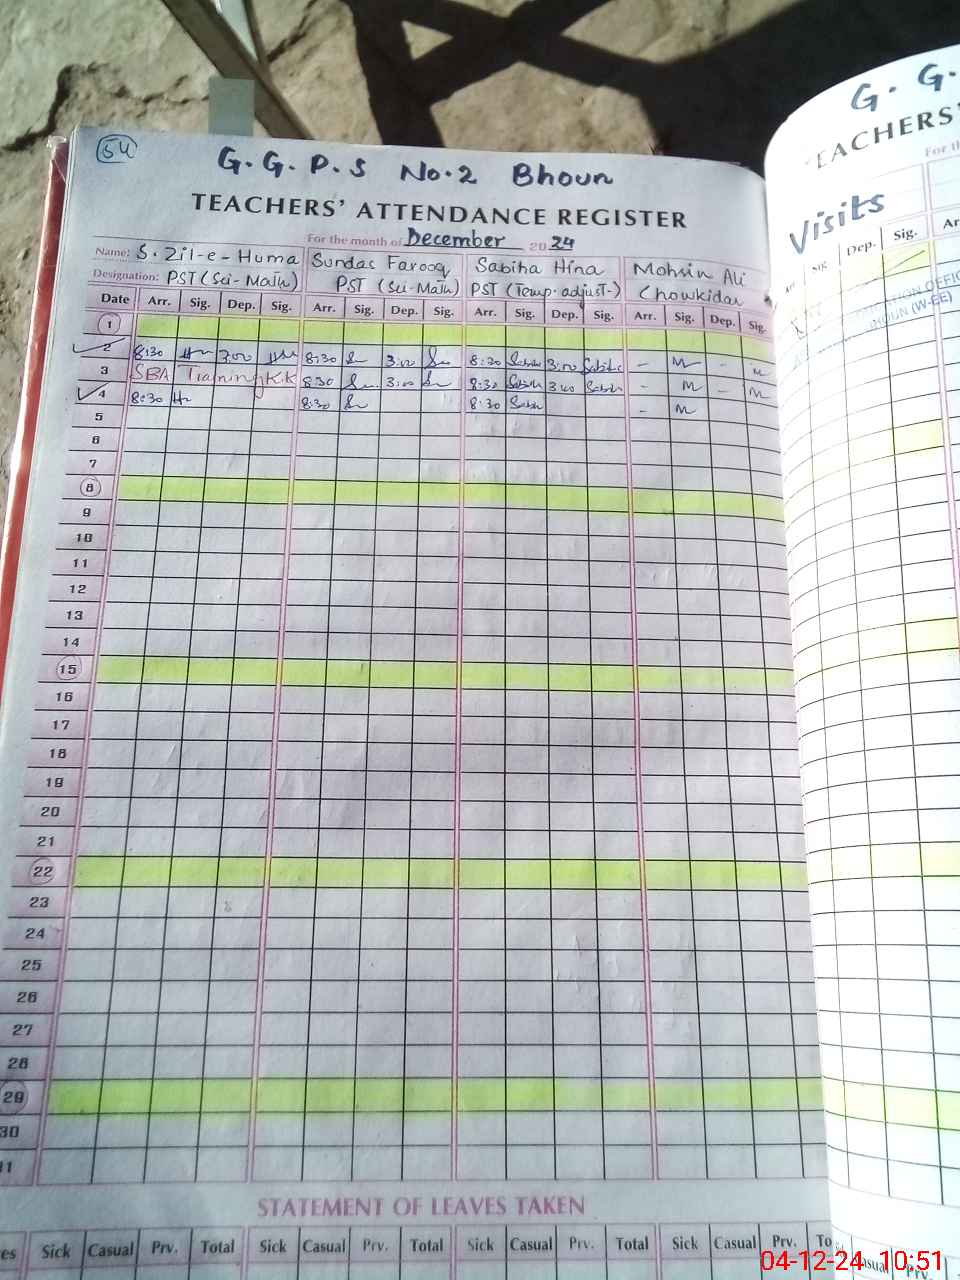 54
G.G.P.S No.2 Bhoun
TEACHERS' ATTENDANCE REGISTER
For the month of December 2024
Name: S. Zil-e-Huma Sundas Farooq Sabiha Hina Mohsin Ali
Designation: PST (Sci-Math) PST (Sci-Math) PST (Temp. adjust-) Chowkidar
Date Arr. Sig. Dep. Sig. Arr. Sig. Dep. Sig. Arr. Sig. Dep. Sig. Arr. Sig. Dep. Sig.
1
2 8:30 3:00 8:30 3:00 8:30 Sabiha 3:00 Sabiha - M - M
3 SBA Training KK 8:30 3:00 8:30 Sabiha Sabiha - M - M
4 8:30 8:30 8:30 Sabiha - M
5
6
7
8
9
10
11
12
13
14
15
16
17
18
19
20
21
22
23
24
25
26
27
28
29
30
STATEMENT OF LEAVES TAKEN
Sick Casual Prv. Total Sick Casual Prv. Total Sick Casual Prv. Total Sick Casual Prv.
G. G.
TEACHERS'
For th
Visits
Sig. Dep. Sig. Ar
Prv.
04-12-24 10:51